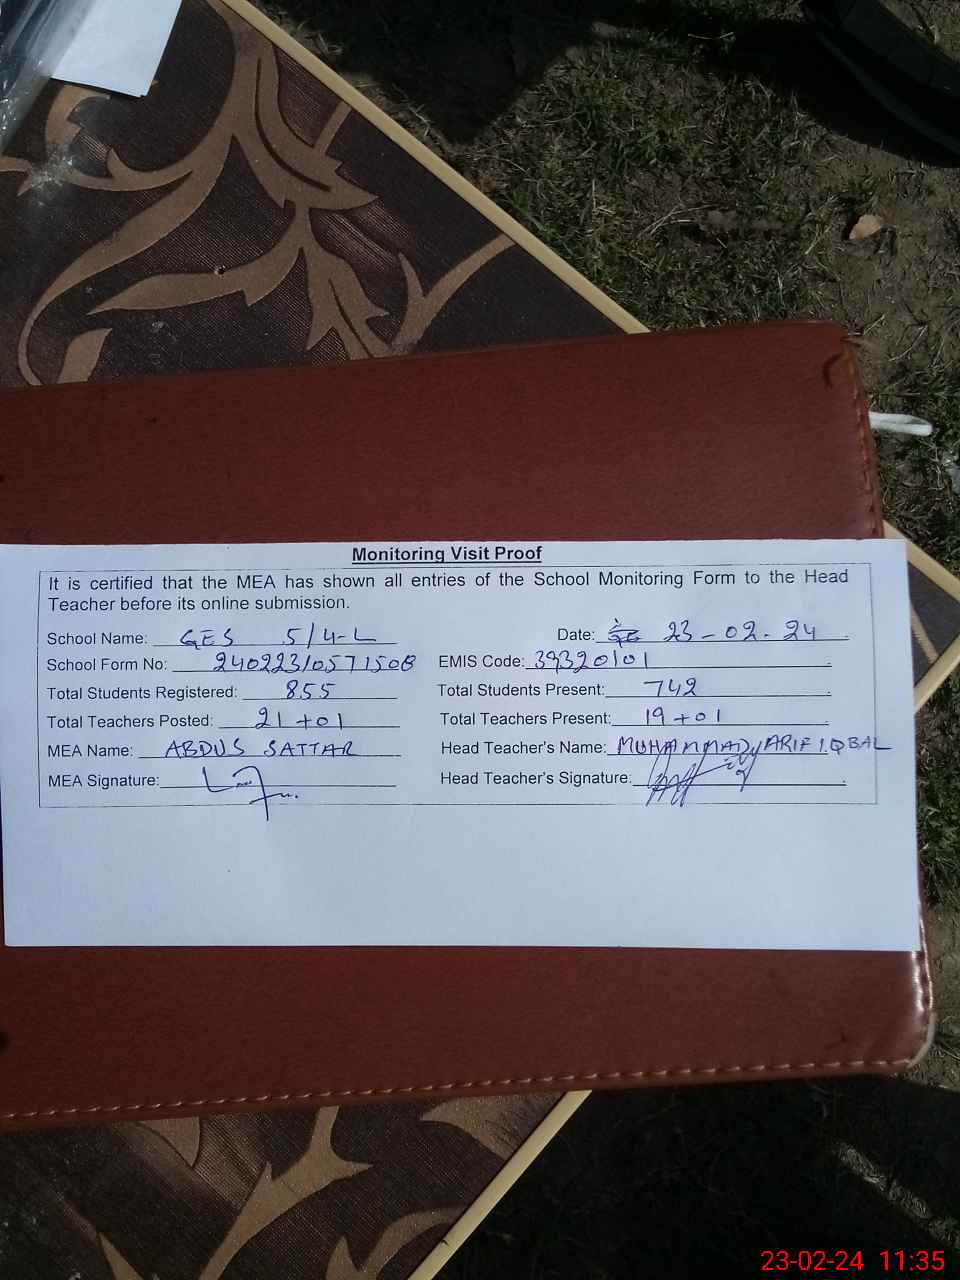 Monitoring Visit Proof
It is certified that the MEA has shown all entries of the School Monitoring Form to the Head
Teacher before its online submission.
School Name: GES 5/4-L Date: 23-02-24
School Form No: 2402231057150B EMIS Code: 39320101
Total Students Registered: 855 Total Students Present: 742
Total Teachers Posted: 21+01 Total Teachers Present: 19+01
MEA Name: ABDUS SATTAR Head Teacher's Name: MUHAMMAD ARIF IQBAL
MEA Signature: Head Teacher's Signature:
23-02-24 11:35